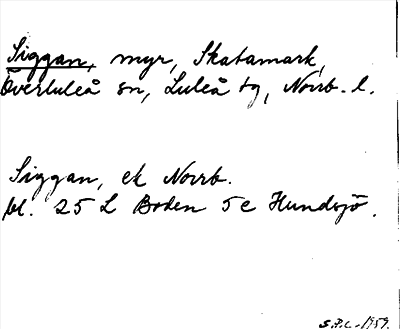 Siggan, myr, Skatamark,
Överluleå sn, Luleå tg, Norrb. l.
Siggan, ek Norrb.
bl. 25 L Boden 5 c Hundsjö.
S.P.L. - 1959.